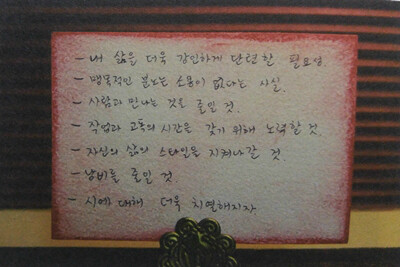 - 내 삶을 더욱 강인하게 단련할 필요성.
- 맹목적인 분노는 소용이 없다는 사실.
- 사람과 만나는 것을 줄일 것.
- 작업과 고독의 시간을 갖기 위해 노력할 것.
- 자신의 삶의 스타일을 지켜나갈 것
- 낭비를 줄일 것
- 시에 대해 더욱 치열해지자